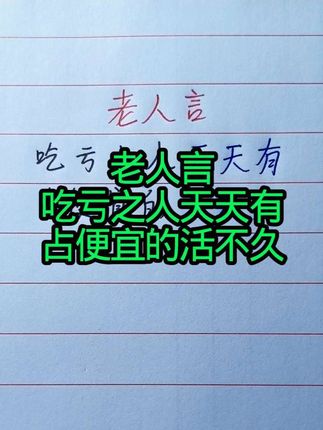 老人言
吃亏 天有
老人言
吃亏之人天天有
占便宜的活不久